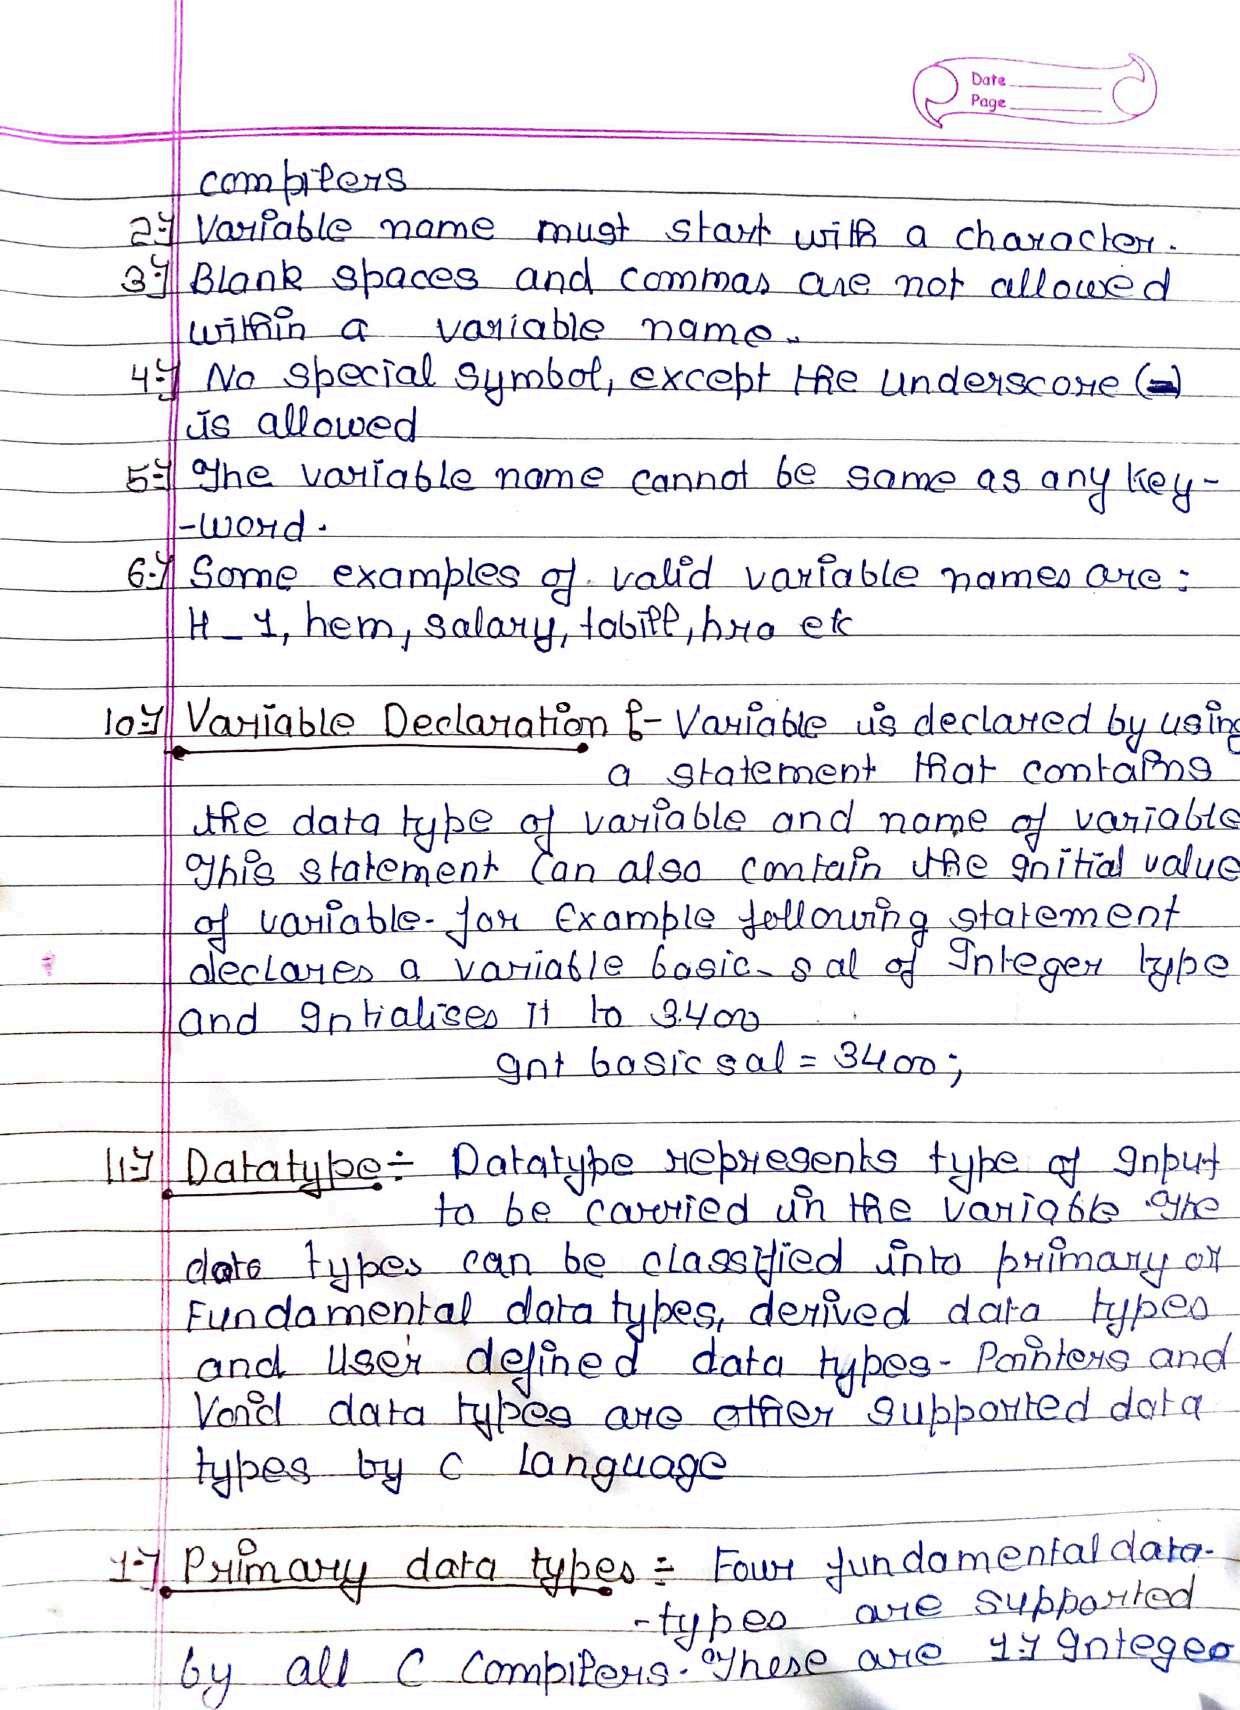 Date
Page
compilers
2-} Variable name must start with a character.
3-} Blank spaces and commas are not allowed
within a variable name.
4-} No special symbol, except the underscore (-)
is allowed
5-} The variable name cannot be same as any key-
-word.
6-} Some examples of valid variable names are:
H_1, hem, salary, tabill, hra etc
10-} Variable Declaration :- Variable is declared by using
a statement that contains
the data type of variable and name of variable
This statement Can also contain the Initial value
of variable. for Example following statement
declares a variable basic-sal of Integer type
and Intialises It to 3400
Int basic sal = 3400;
11-} Datatype:- Datatype represents type of Input
to be carried in the variable The
data types can be classified into primary or
Fundamental data types, derived data types
and User defined data types- Pointers and
Void data types are other supported data
types by C Language
1-} Primary data types :- Four fundamental data-
-types are supported
by all C Compilers. These are 1-} Integer